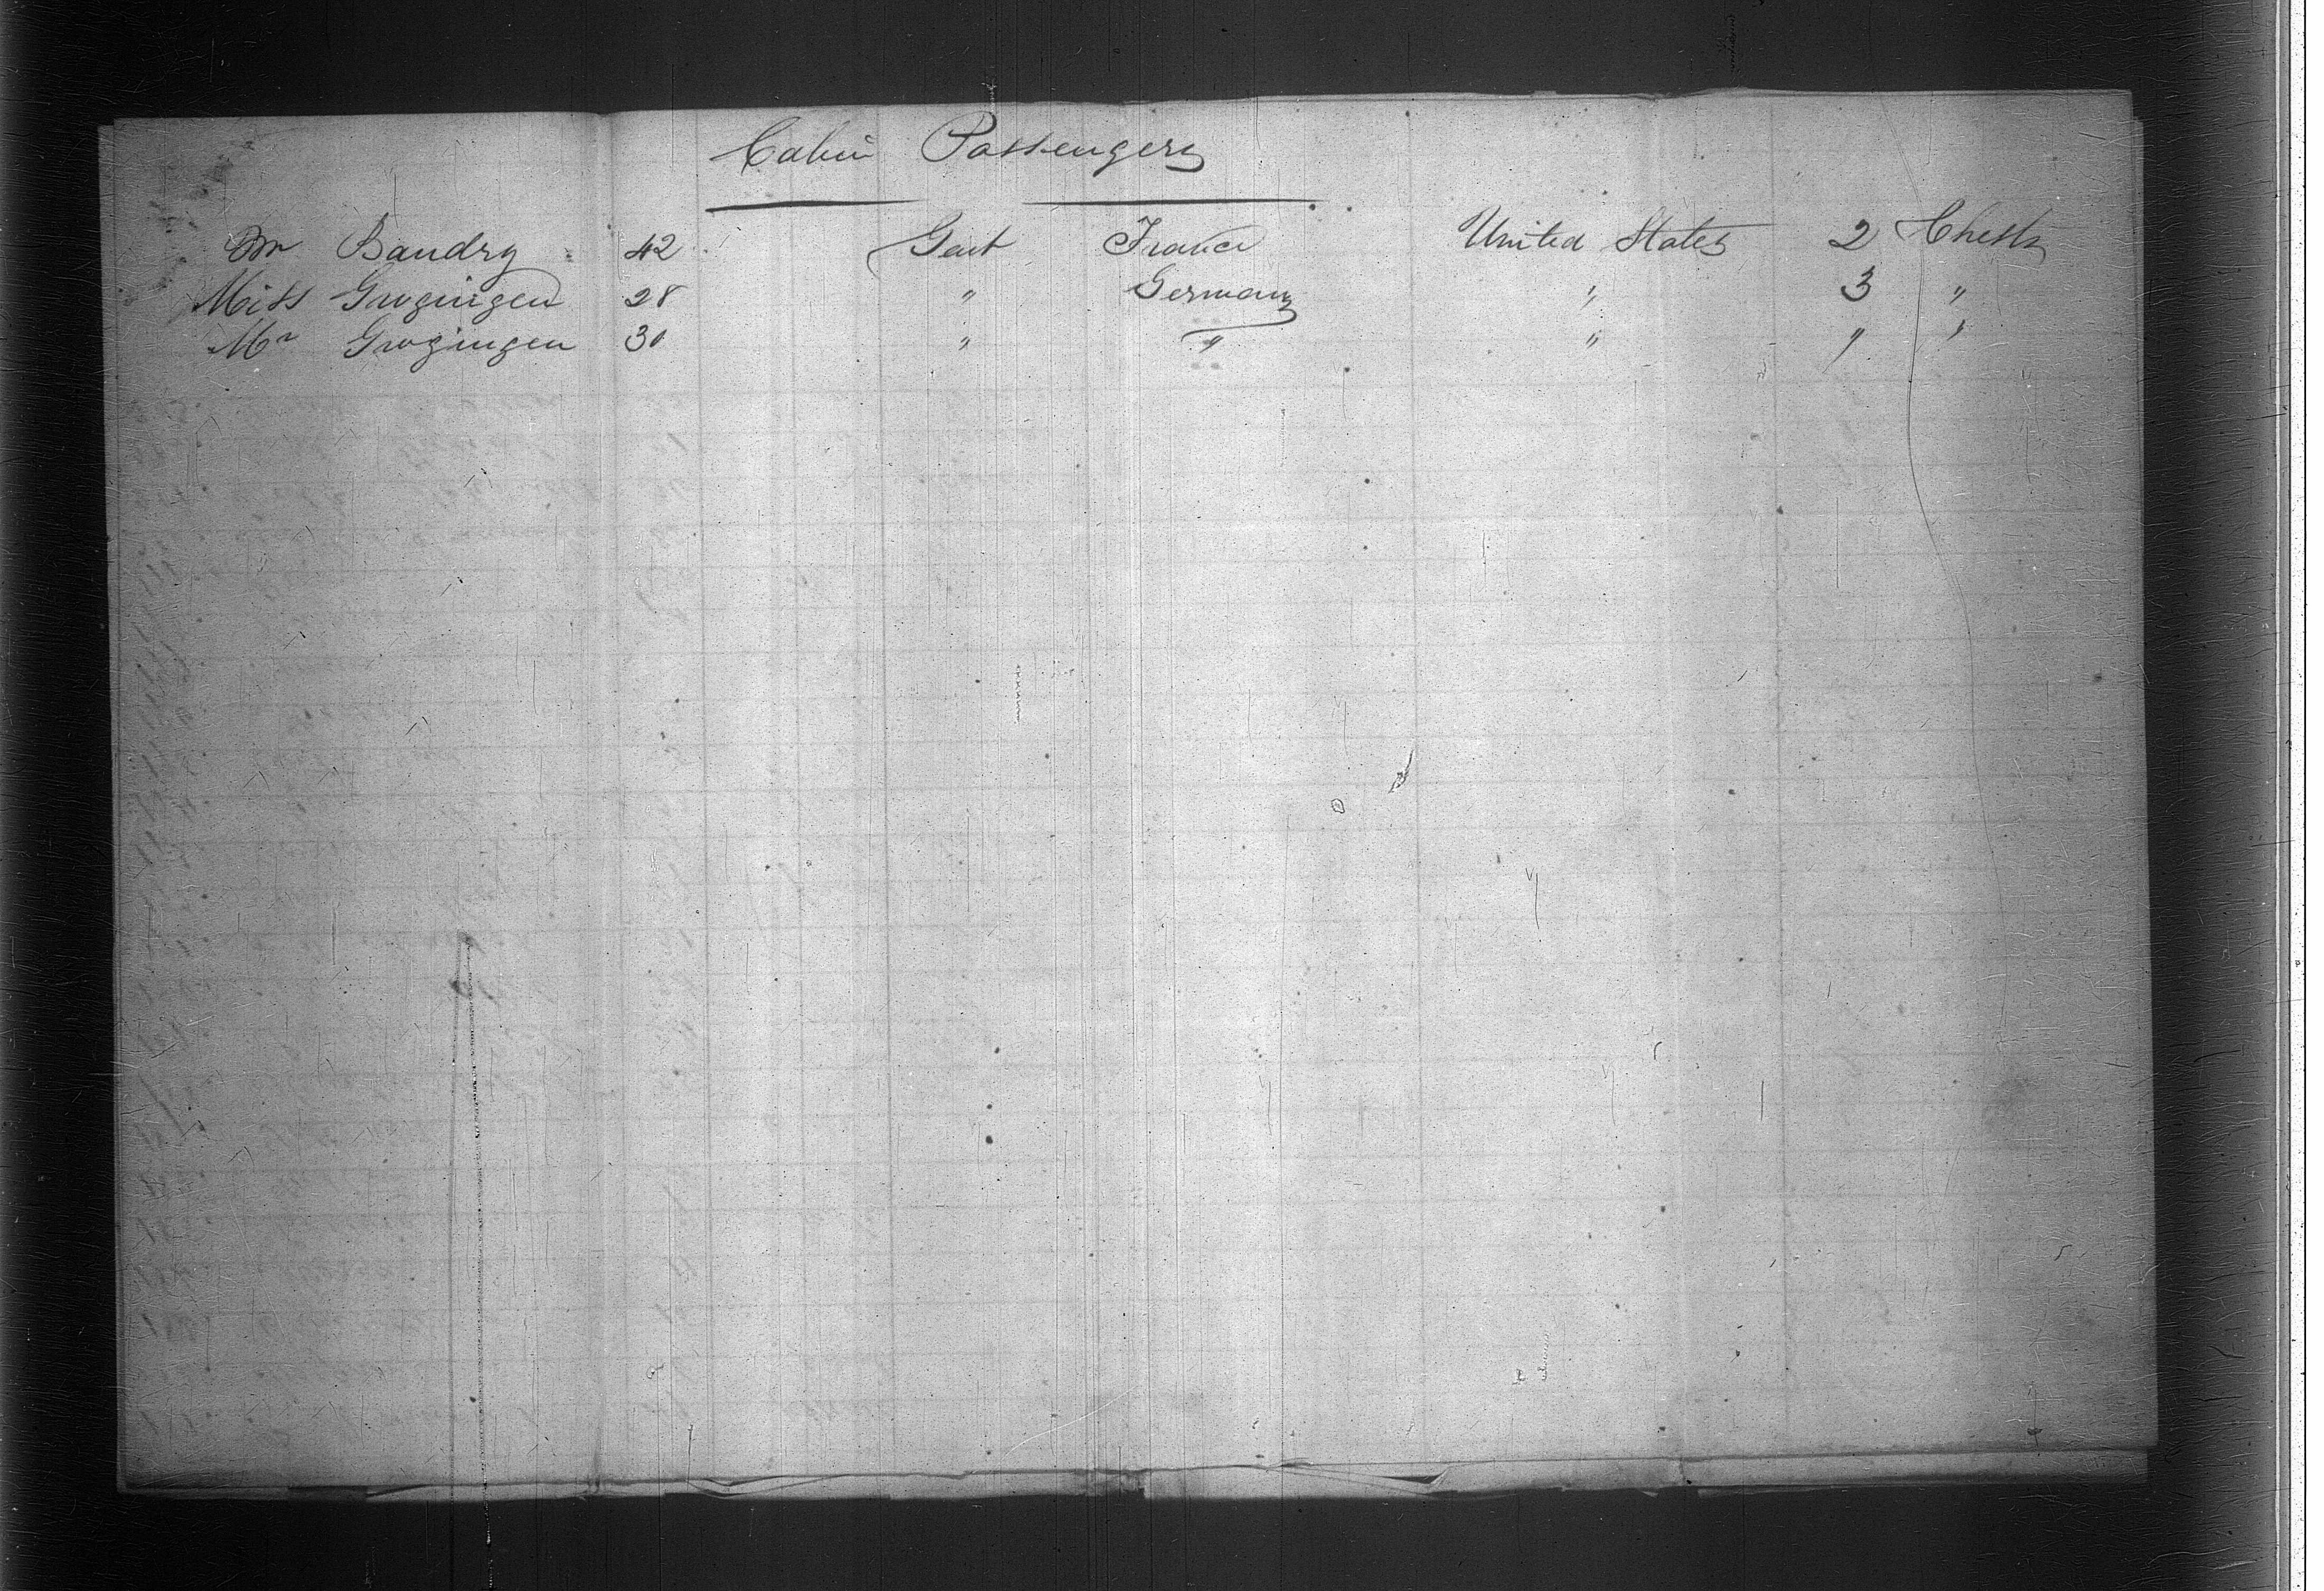 Cabin Passengers
Mr Baudry 42 Gent France United States 2 Chests
Miss Grozingen 28 " Germany " 3 "
Mr Grozingen 30 " " " " "